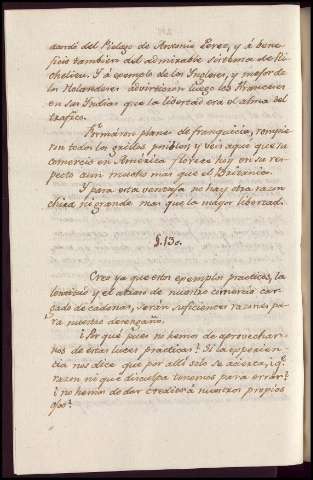 dando del Relazo de Antonio Perez, y á bene-
ficio tambien del admirable sistema de Ri-
chelieu. Y á exemplo de los Ingleses, y mejor de
los Holandeses advirtieron luego los Franceses
en sus Indias que la libertad era el alma del
trafico.
Formaron planes de franquicia, rompie-
ron todos los grillos posibles, y veis aqui que su
comercio en America florece hoy en su res-
pecto aun mucho mas que el Britanico.
Y para esta ventaja no hay otra razon
chica, ni grande mas que la mayor libertad.
§. 13o.
Creo ya que estos exemplos practicos, la
lentitud y el atraso de nuestro comercio car-
gado de cadenas, serán suficientes razones pa-
ra nuestro desengaño.
¿Por qué pues no hemos de aprovechar-
nos de estas luces practicas? Si la experien-
cia nos dice que por alli solo se acierta, ¿qe.
razon ni que disculpa tenemos para errar?
¿no hemos de dar credito á nuestros propios
ojos?